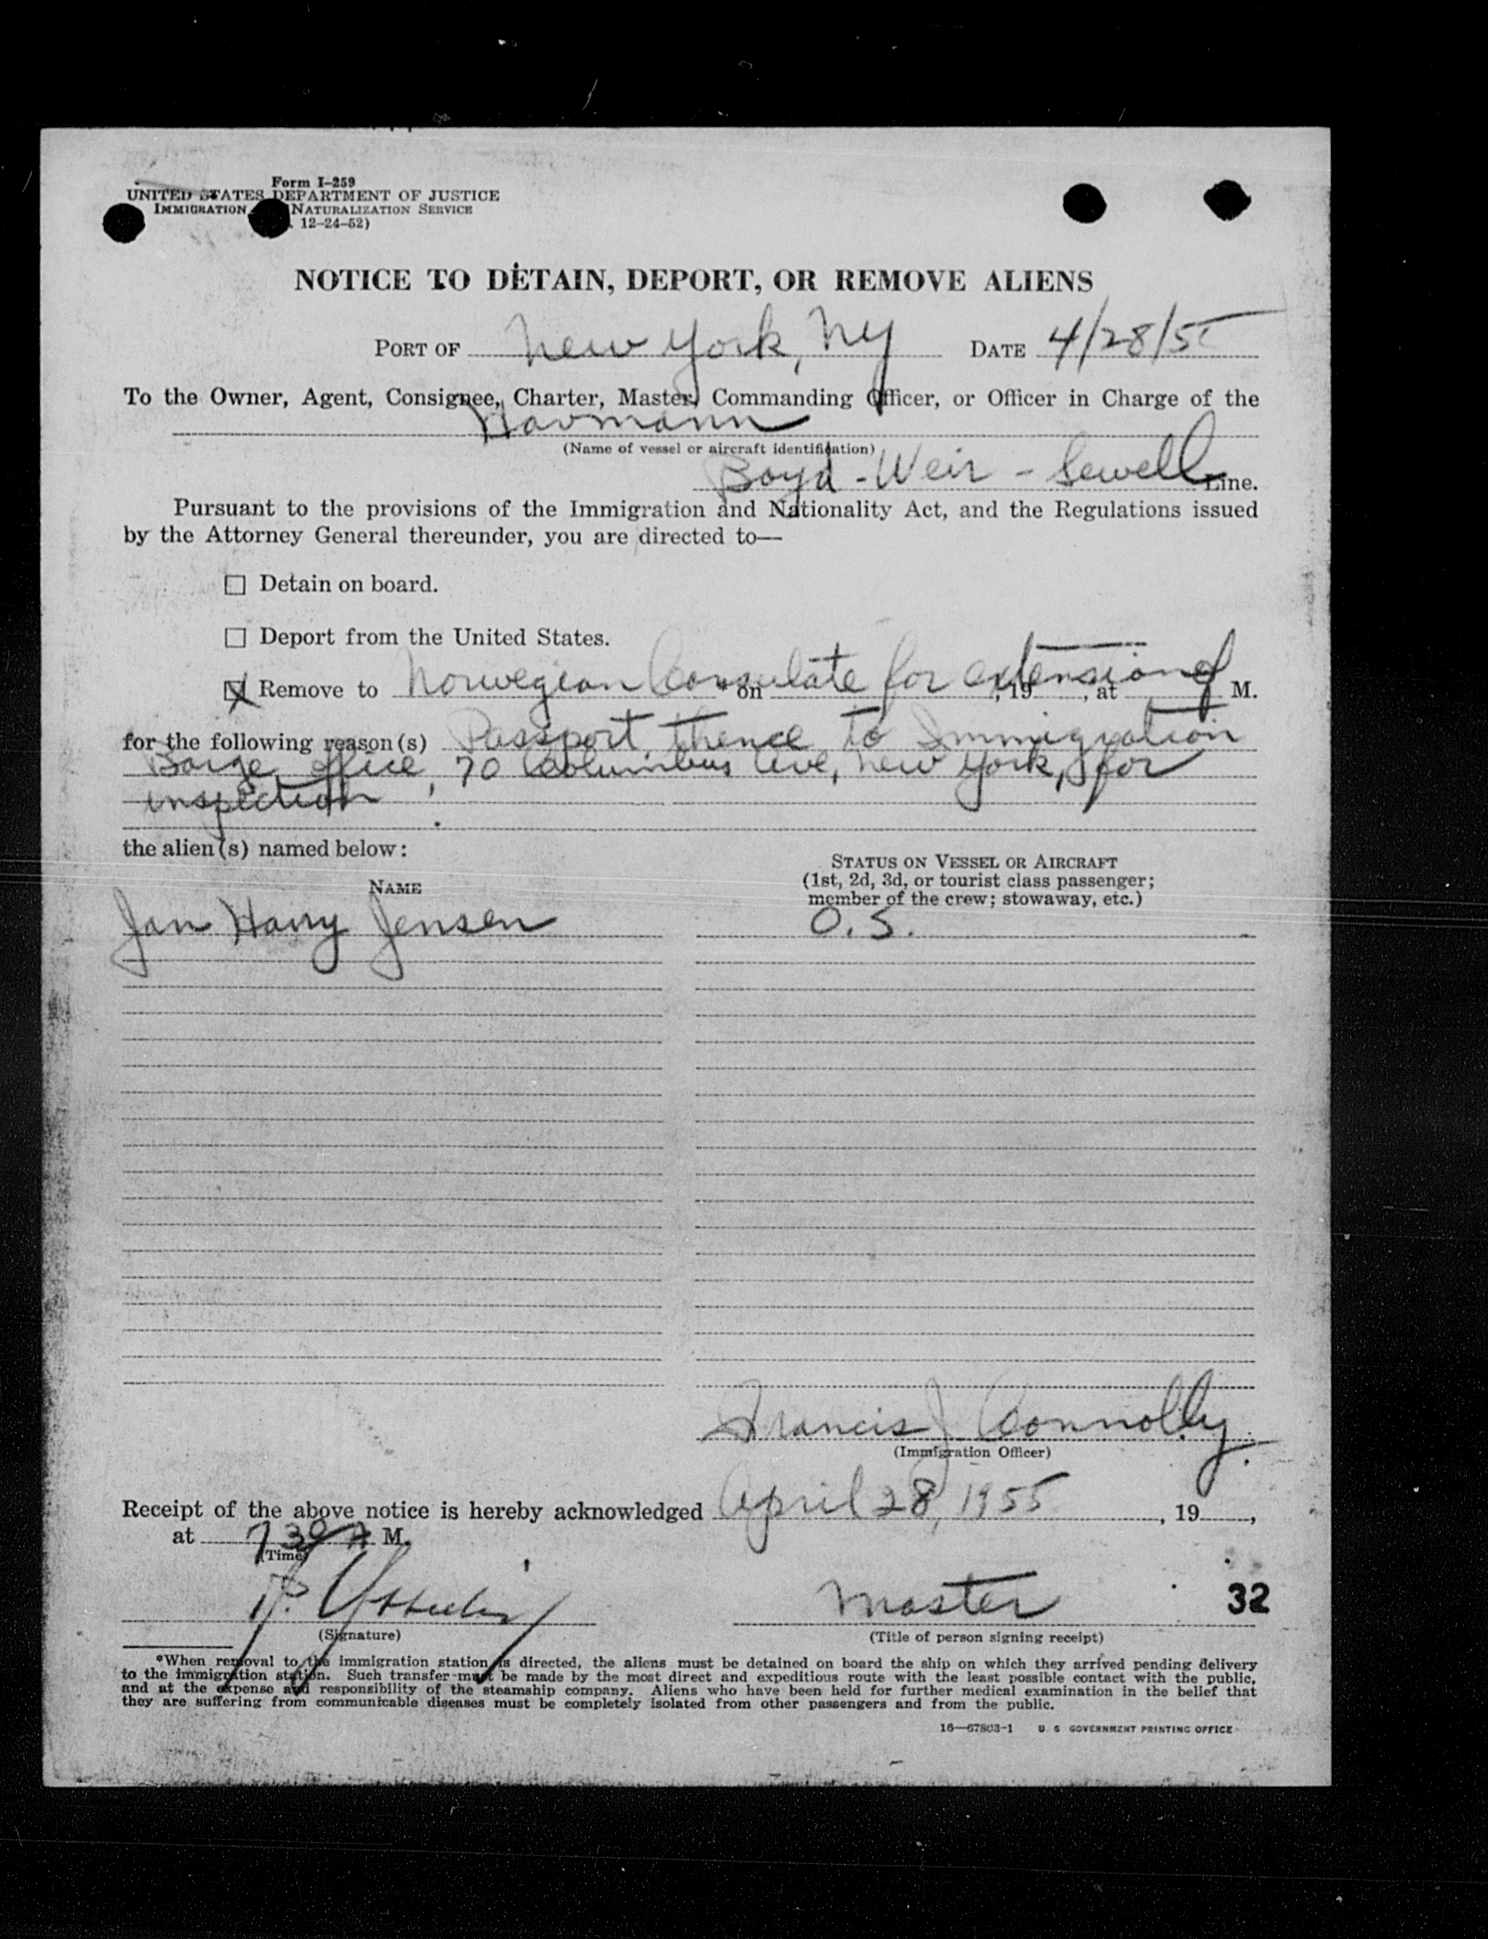 Form I-259
UNITED STATES DEPARTMENT OF JUSTICE
IMMIGRATION NATURALIZATION SERVICE
12-24-52)
NOTICE TO DETAIN, DEPORT, OR REMOVE ALIENS
PORT OF New York, NY DATE 4/28/55
To the Owner, Agent, Consignee, Charter, Master, Commanding Officer, or Officer in Charge of the
Havmann
(Name of vessel or aircraft identification)
Boyd - Weir - Sewell Line.
Pursuant to the provisions of the Immigration and Nationality Act, and the Regulations issued
by the Attorney General thereunder, you are directed to—
☐ Detain on board.
☐ Deport from the United States.
☒ Remove to Norwegian Consulate for extension of * on , 19 , at M.
for the following reason(s) Passport, thence to Immigration
Barge office, 70 Columbus Ave, New York, for
inspection
the alien(s) named below:
NAME
STATUS ON VESSEL OR AIRCRAFT
(1st, 2d, 3d, or tourist class passenger;
member of the crew; stowaway, etc.)
Jan Harry Jensen O.S.
Francis J Connolly
(Immigration Officer)
Receipt of the above notice is hereby acknowledged April 28, 1955, 19 ,
at 7 30 A M.
(Time)
Master 32
(Signature) (Title of person signing receipt)
*When removal to the immigration station is directed, the aliens must be detained on board the ship on which they arrived pending delivery
to the immigration station. Such transfer must be made by the most direct and expeditious route with the least possible contact with the public,
and at the expense and responsibility of the steamship company. Aliens who have been held for further medical examination in the belief that
they are suffering from communicable diseases must be completely isolated from other passengers and from the public.
16—67803-1 U. S. GOVERNMENT PRINTING OFFICE